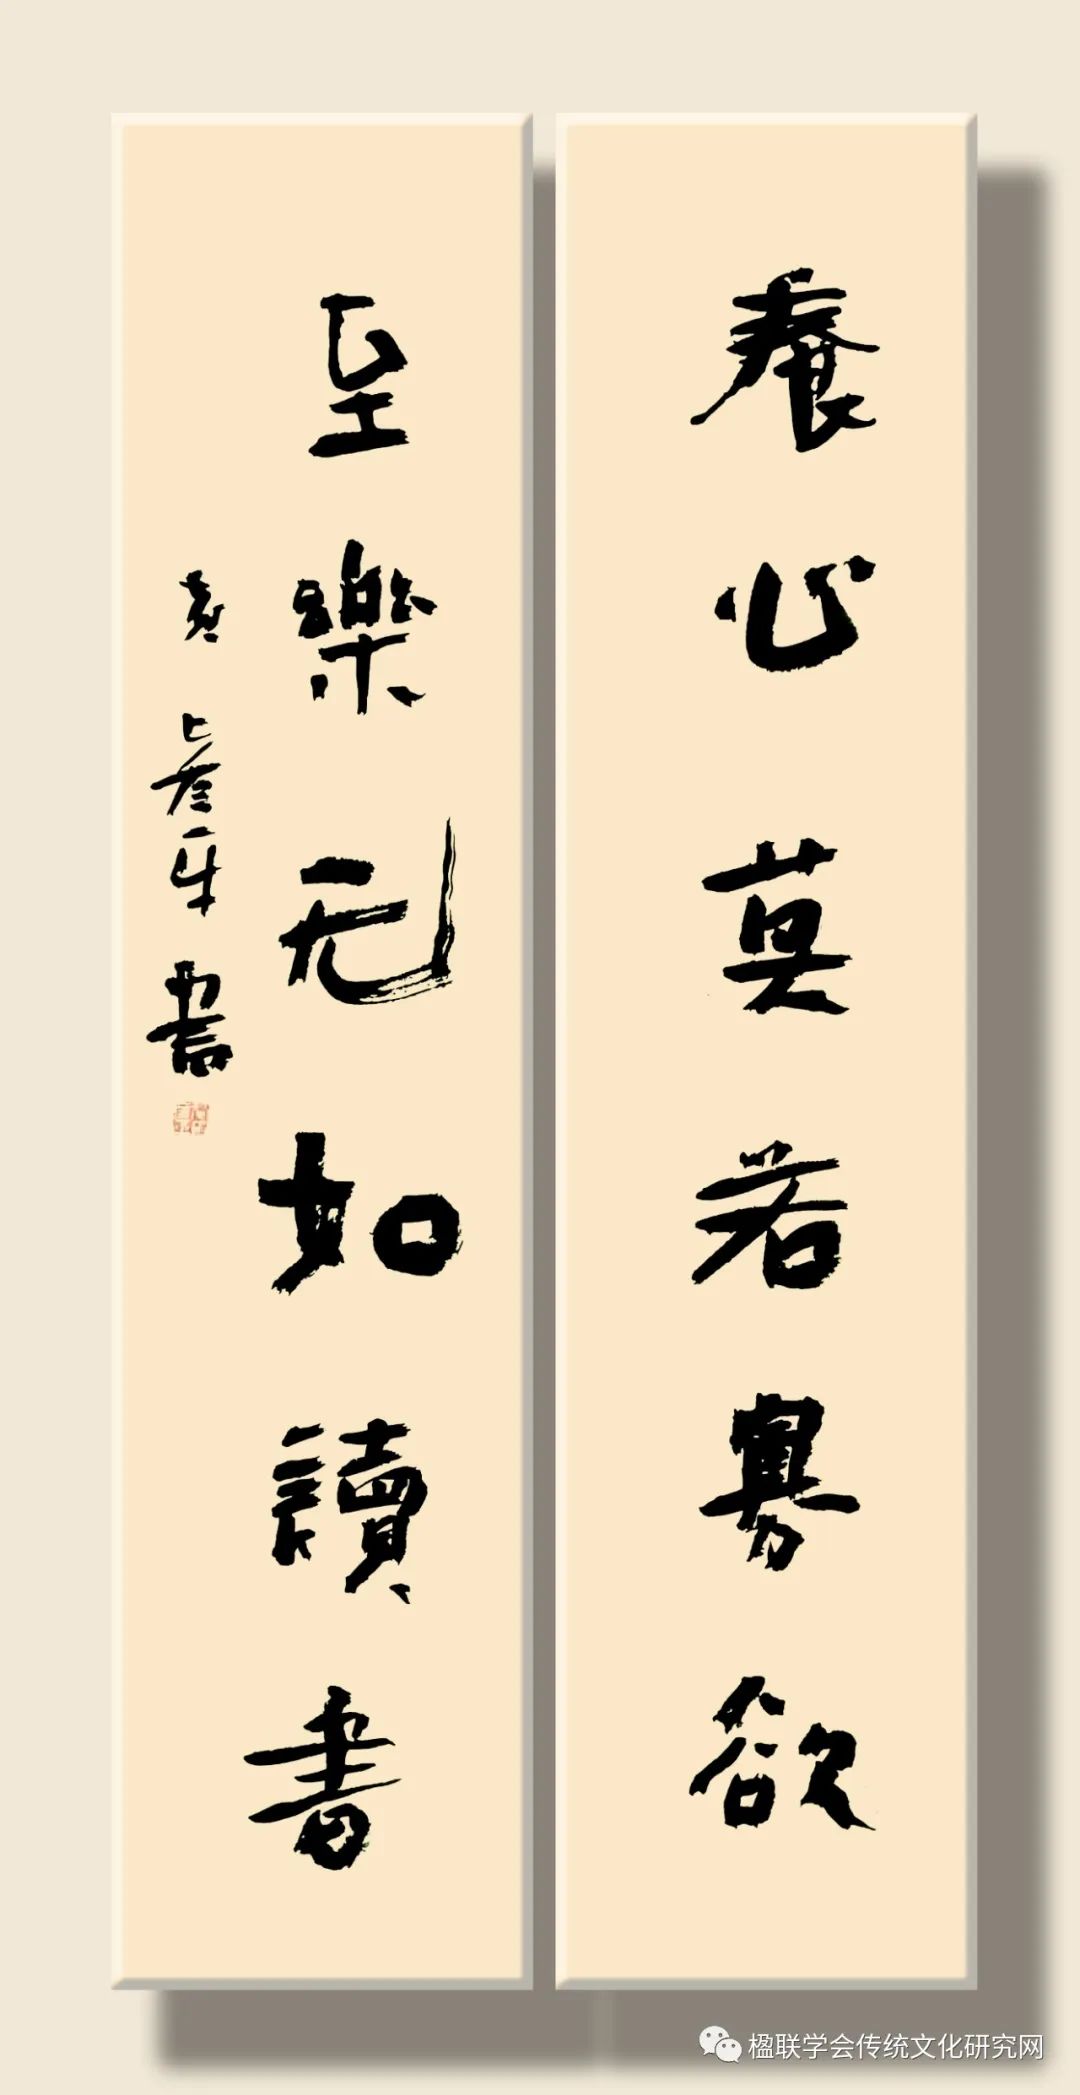 養心莫若寡欲
至樂无如讀書
書
楹联学会传统文化研究网